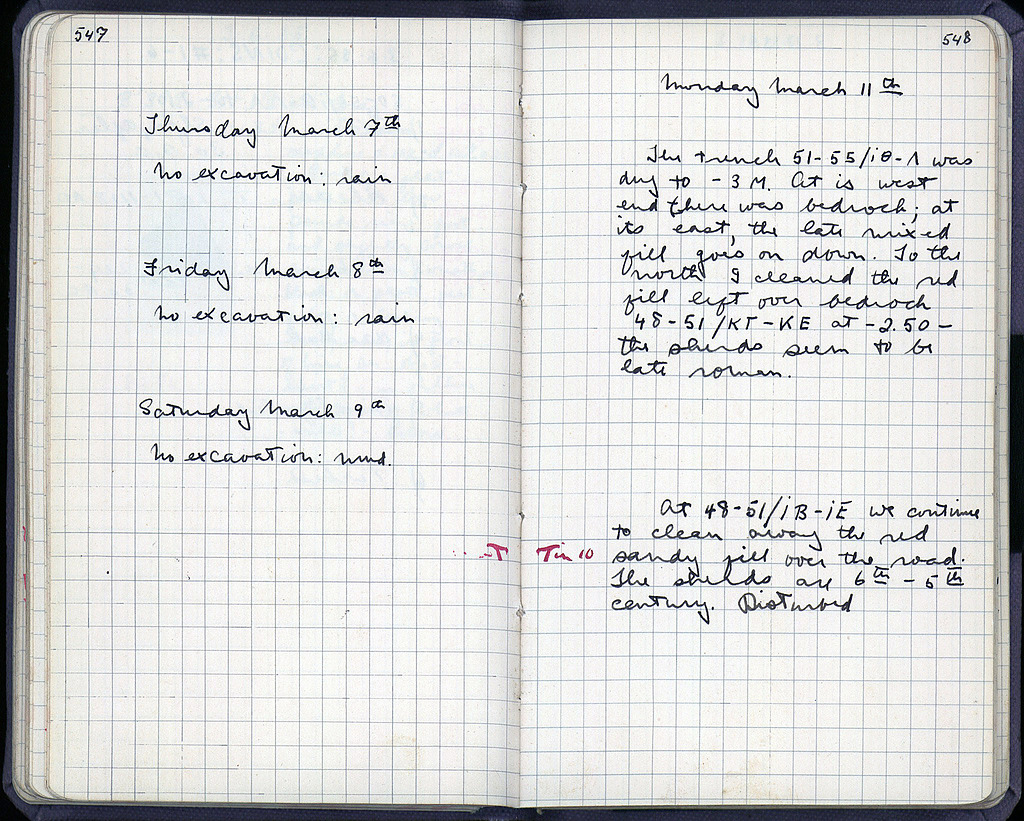 547
Thursday March 7th
No excavation: rain
Friday March 8th
No excavation: rain
Saturday March 9th
No excavation: mud.
548
Monday March 11th
The trench 51-55/iθ-Λ was
dug to -3 M. At is west
end there was bedrock; at
its east, the late mixed
fill goes on down. To the
north I cleaned the red
fill left over bedrock
48-51/KT-KE at -2.50-
the sherds seem to be
late roman.
At 48-51/iB-iE we continue
to clean away the red
sandy fill over the road.
The sherds are 6th - 5th
century. Disturbed
Tin 10